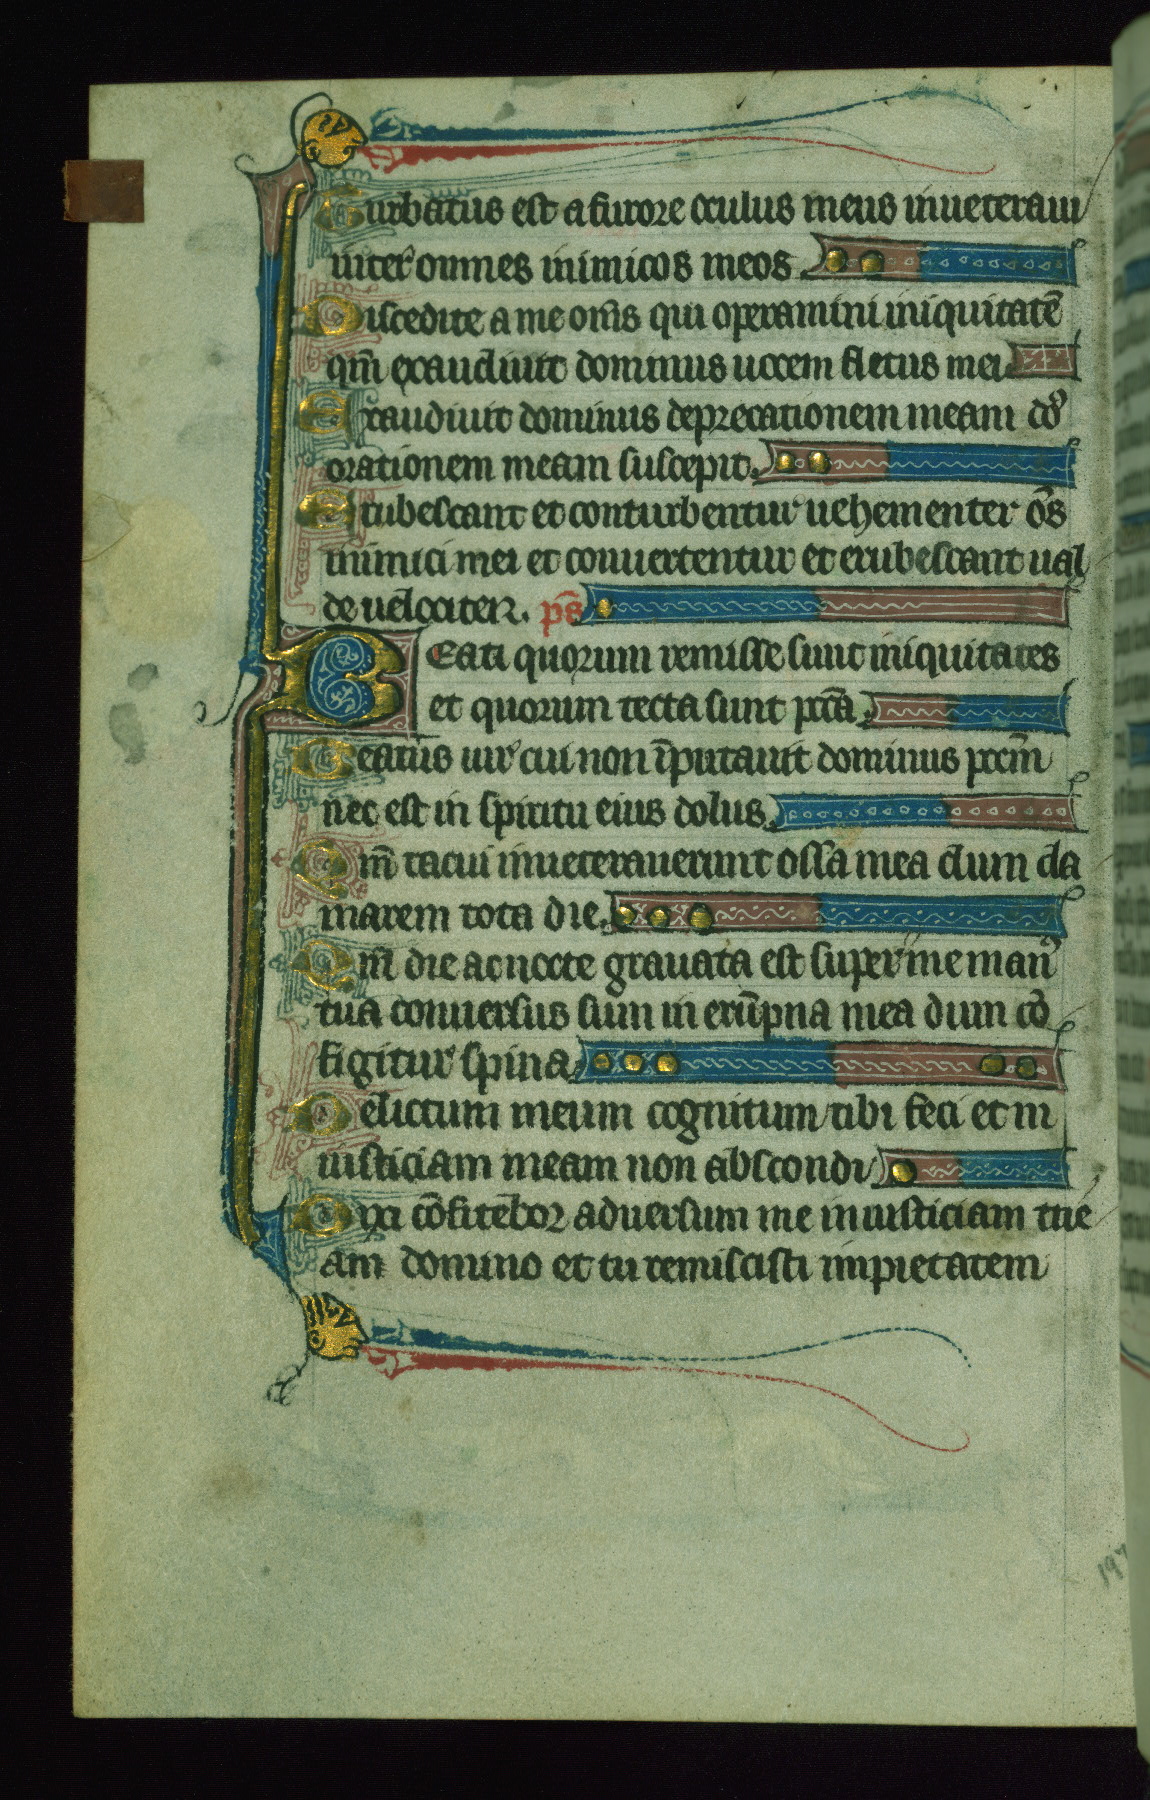 Turbatus est a furore oculus meus inueteraui
inter omnes inimicos meos
Discedite a me om̄s qui operamini iniquitatē
qm̄ exaudiuit dominus uocem fletus mei
Exaudiuit dominus deprecationem meam dō
orationem meam suscepit.
Erubescant et conturbentur uehementer ōs
inimici mei et conuertentur et erubescant ual
de uelociter. pō̄s
Beati quorum remisse sunt iniquitates
et quorum tecta sunt pcc̄a
Beatus uir cui non īputauit dominus pccm̄
nec est in spiritu eius dolus
Qm̄ tacui inueterauerunt ossa mea dum cla
marem tota die.
Qm̄ die ac nocte grauata est super me man᾽
tua conuersus sum in erūpna mea dum cō
figitur spina
Delictum meum cognitum tibi feci et in
iusticiam meam non abscondi
Dixi cōfitebor aduersum me iniusticiam me
am domino et tu remiscisti impietatem
197